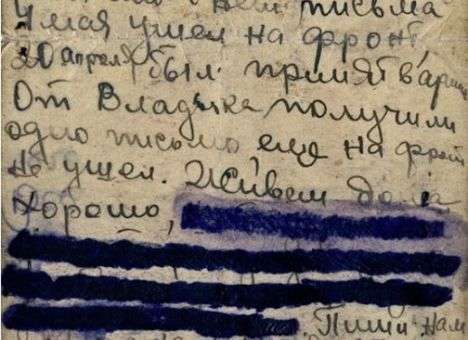 нем письма
4 мая ушел на фронт,
20 апреля был принят в армию
От Владика получили
одно письмо еще на фронт
не ушел. Живем дома
хорошо,
Пиши нам